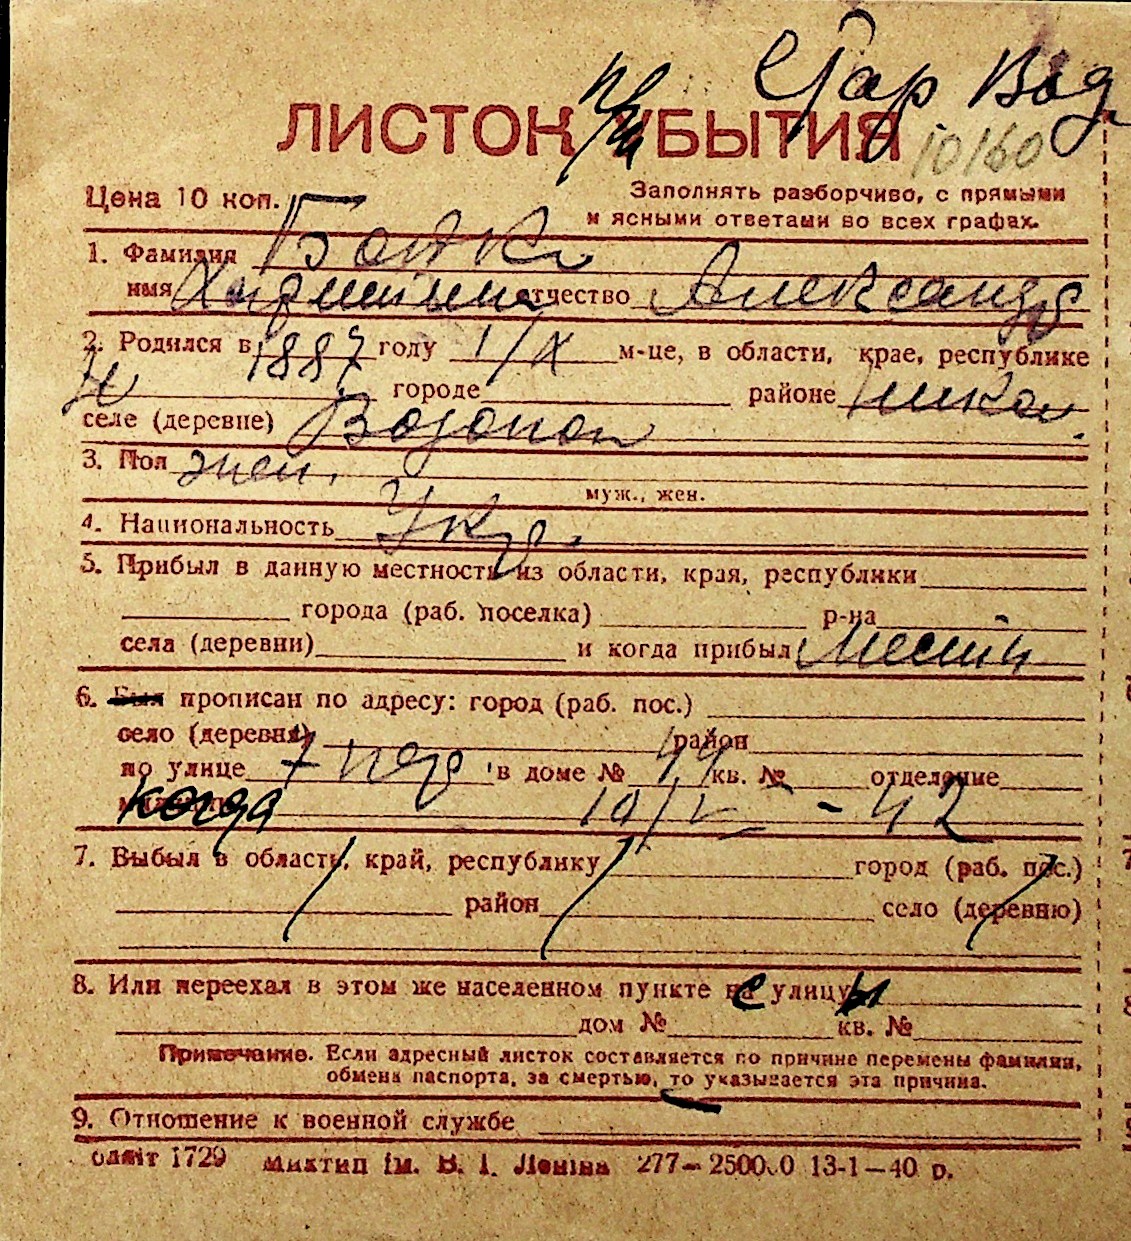 Стар Вод
ЛИСТОК УБЫТИЯ 10160
Цена 10 коп. Заполнять разборчиво, с прямыми
и ясными ответами во всех графах.
1. Фамилия
имя отчество Александр
2. Родился в 1887 году 1/X м-це, в области, крае, республике
городе районе Никол.
селе (деревне) Водопой
3. Пол жен.
муж., жен.
4. Национальность Укр.
5. Прибыл в данную местность из области, края, республики
города (раб. поселка) р-на
села (деревни) и когда прибыл местн
6. Был прописан по адресу: город (раб. пос.)
село (деревня) район
по улице 7 пер в доме № 44 кв. № отделение
когда 10/V - 42
7. Выбыл в область, край, республику город (раб. пос.)
район село (деревню)
8. Или переехал в этом же населенном пункте на с улицуы
дом № кв. №
Примечание. Если адресный листок составляется по причине перемены фамилии,
обмена паспорта, за смертью, то указывается эта причина.
9. Отношение к военной службе
одміт 1729 Миктип ім. В. І. Леніна 277—250000 13-1—40 р.